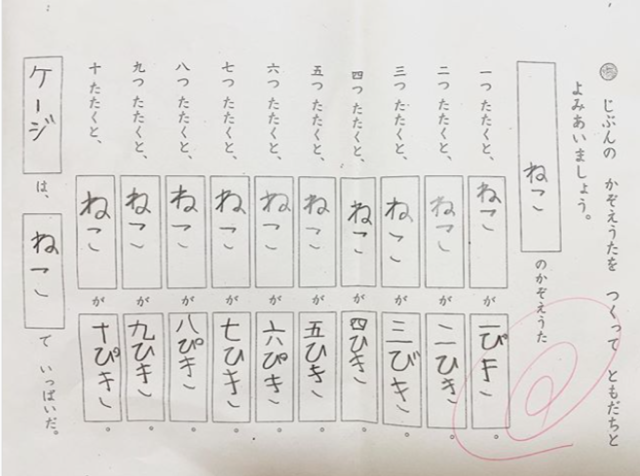 じぶんの かぞえうたを つくって ともだちと
よみあいましょう。
ねこ のかぞえうた
一つ たたくと、 ねこ が 一ぴき。
二つ たたくと、 ねこ が 二ひき。
三つ たたくと、 ねこ が 三びき。
四つ たたくと、 ねこ が 四ひき。
五つ たたくと、 ねこ が 五ひき。
六つ たたくと、 ねこ が 六ぴき。
七つ たたくと、 ねこ が 七ひき。
八つ たたくと、 ねこ が 八ぴき。
九つ たたくと、 ねこ が 九ひき。
十 たたくと、 ねこ が 十ぴき。
ケージ は、 ねこ で いっぱいだ。